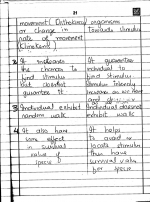 31
movement (Orthokinesis) organisms
or change in towards stimulus
rate of movement
(Klinokinesis)
2. It increases It guarantees
the chances to individual to
find stimulus find stimulus
but doesn't stimulus
guarantee it
3 Individual exhibit Individual doesn't
random walk exhibit walk
4. It also have It helps
some effect to avoid or
in survival locate stimulus
value of thus have
species survival value
for species